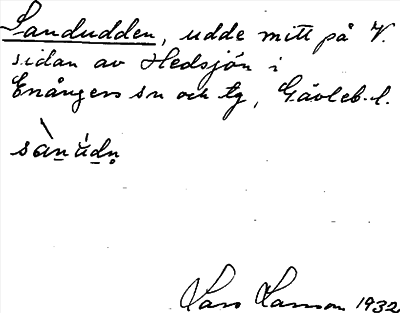 Sandudden, udde mitt på V.
sidan av Hedsjön i
Enångers sn och tg, Gävleb. l.
sànúdn̥
Lars Larsson 1932